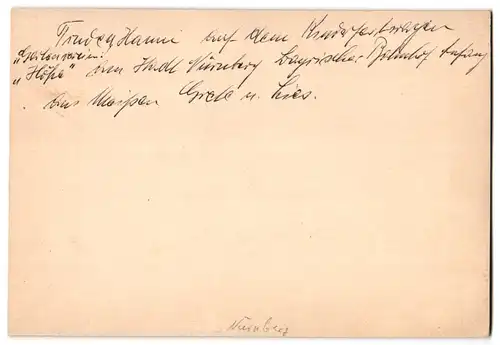 Trude, Hanni auf dem Kinderfestwagen
"Gartenverein
"Höhe" Nürnberg bayrischer Bahnhof Anfang
aus Meißen Grete u. Lies.
Nürnberg